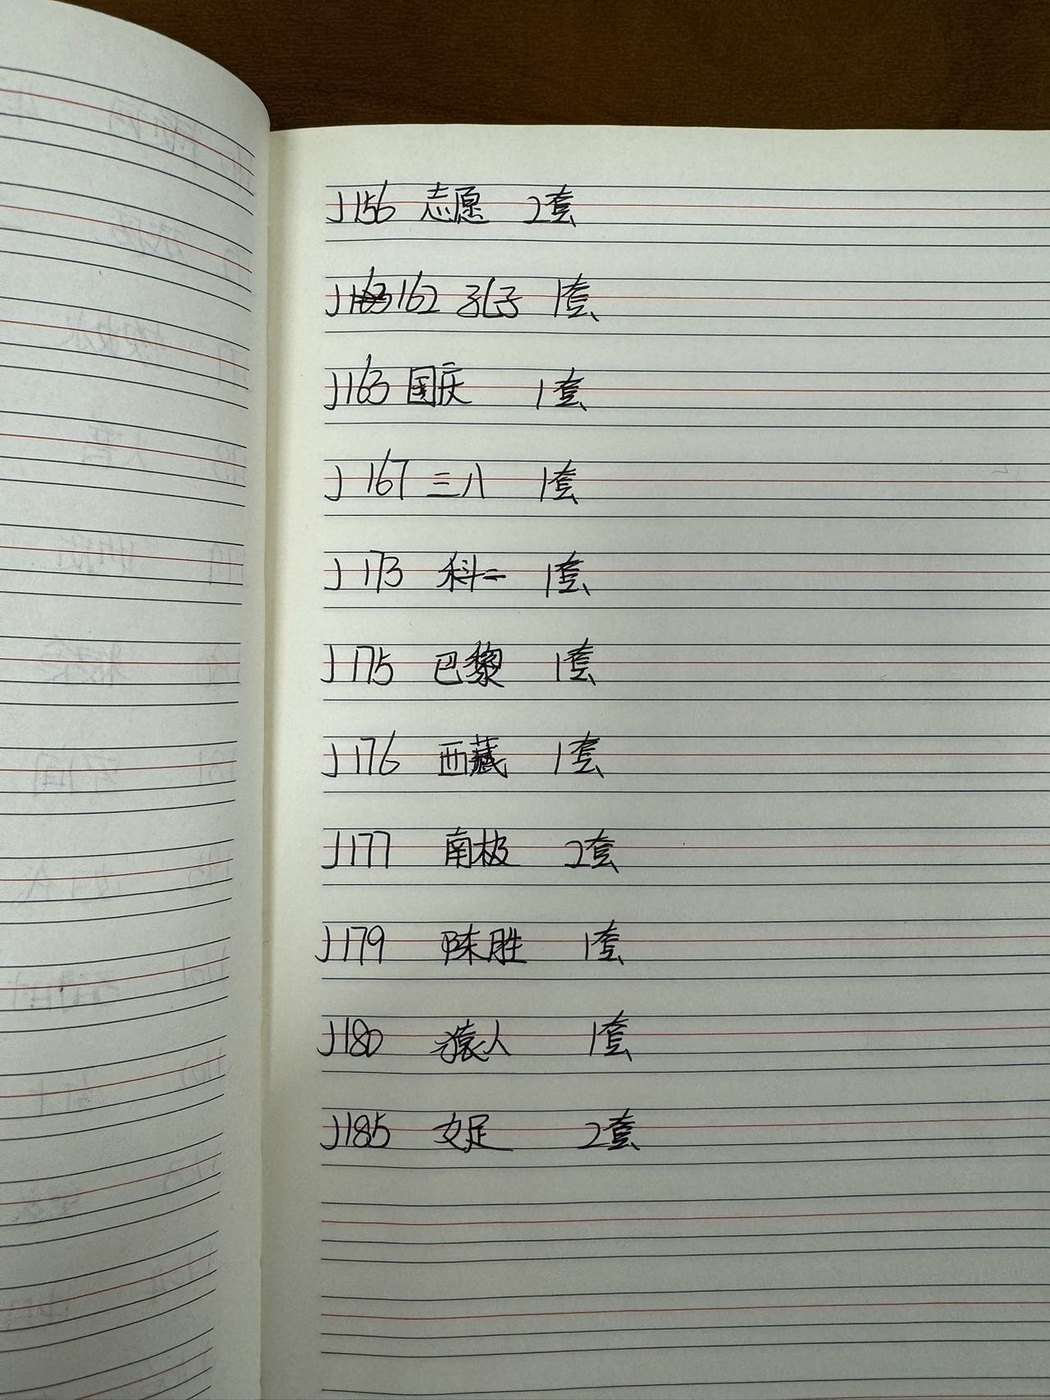 J156 志愿 2套
J162 孔子 1套
J163 国庆 1套
J167 三八 1套
J173 科二 1套
J175 巴黎 1套
J176 西藏 1套
J177 南极 2套
J179 陈胜 1套
J180 猿人 1套
J185 女足 2套